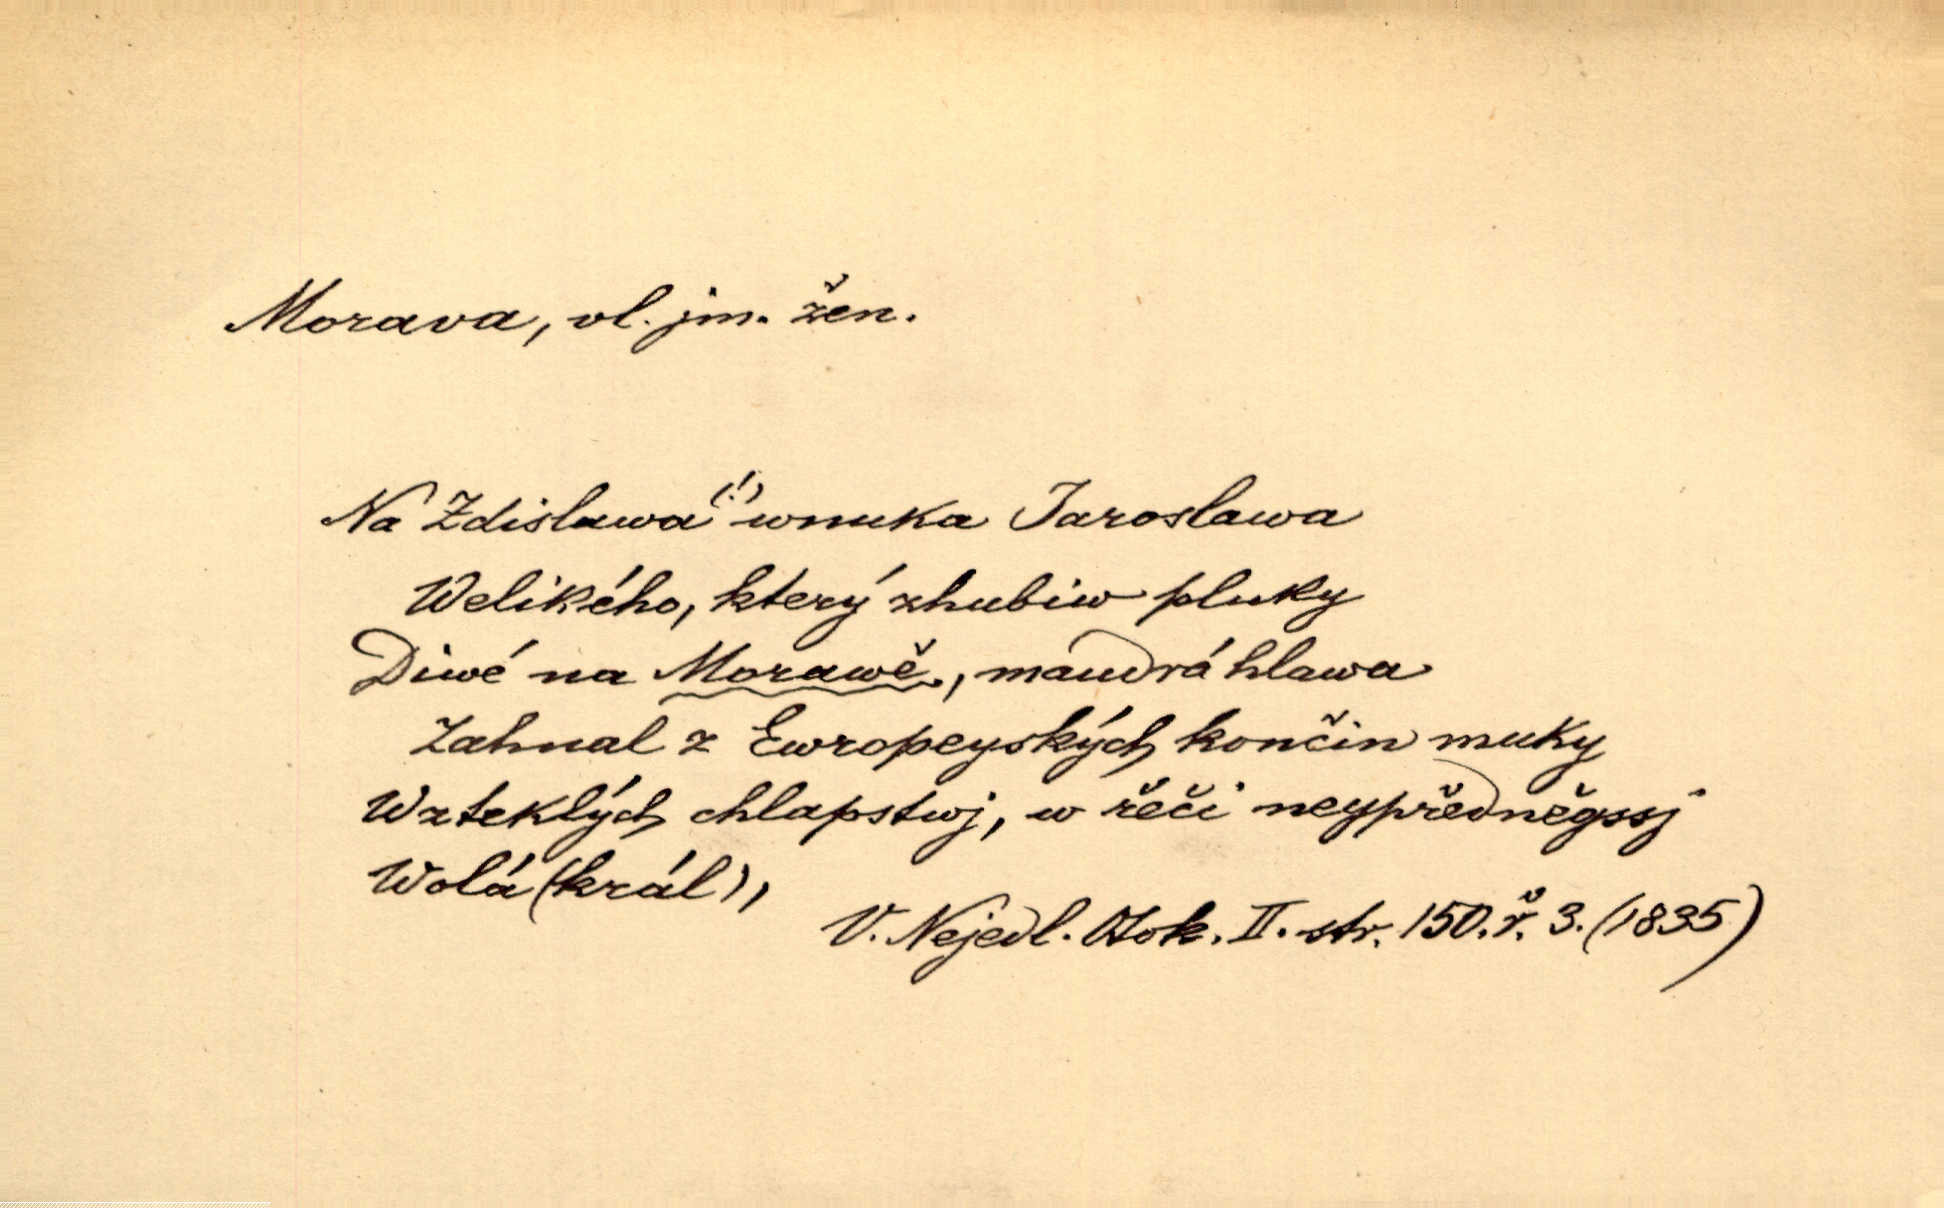 Morava, vl. jm. žen.
Na Zdislawa (!) wnuka Jaroslawa
Welikého, který zhubiw pluky
Diwé na Morawě, maudrá hlawa
Zahnal z Ewropeyských končin muky
Wzteklých chlapstwj, w řeči neypředněgssj
Wolá (král),
V. Nejedl. Otok. II. str. 150. ř. 3. (1835)